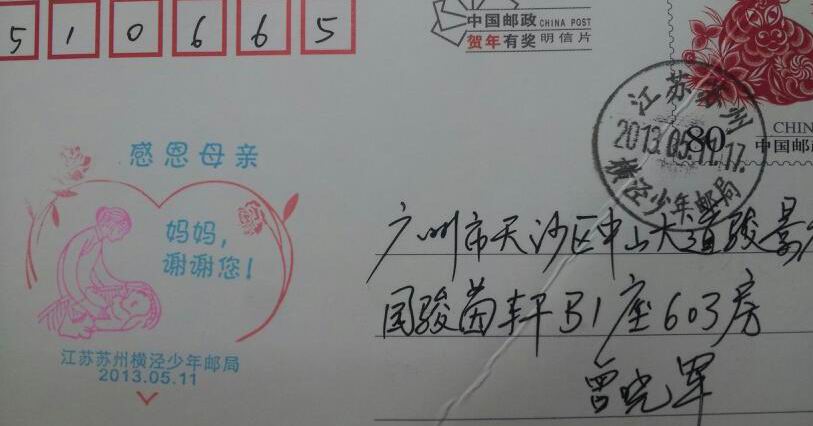 510665
中国邮政 CHINA POST
贺年有奖 明信片
江苏苏州
2013.05.11.17
横泾少年邮局
80
CHIN
中国邮政
感恩母亲
妈妈，
谢谢您！
江苏苏州横泾少年邮局
2013.05.11
广州市天沙区中山大道骏景
园骏茵轩B1座603房
曾晓军